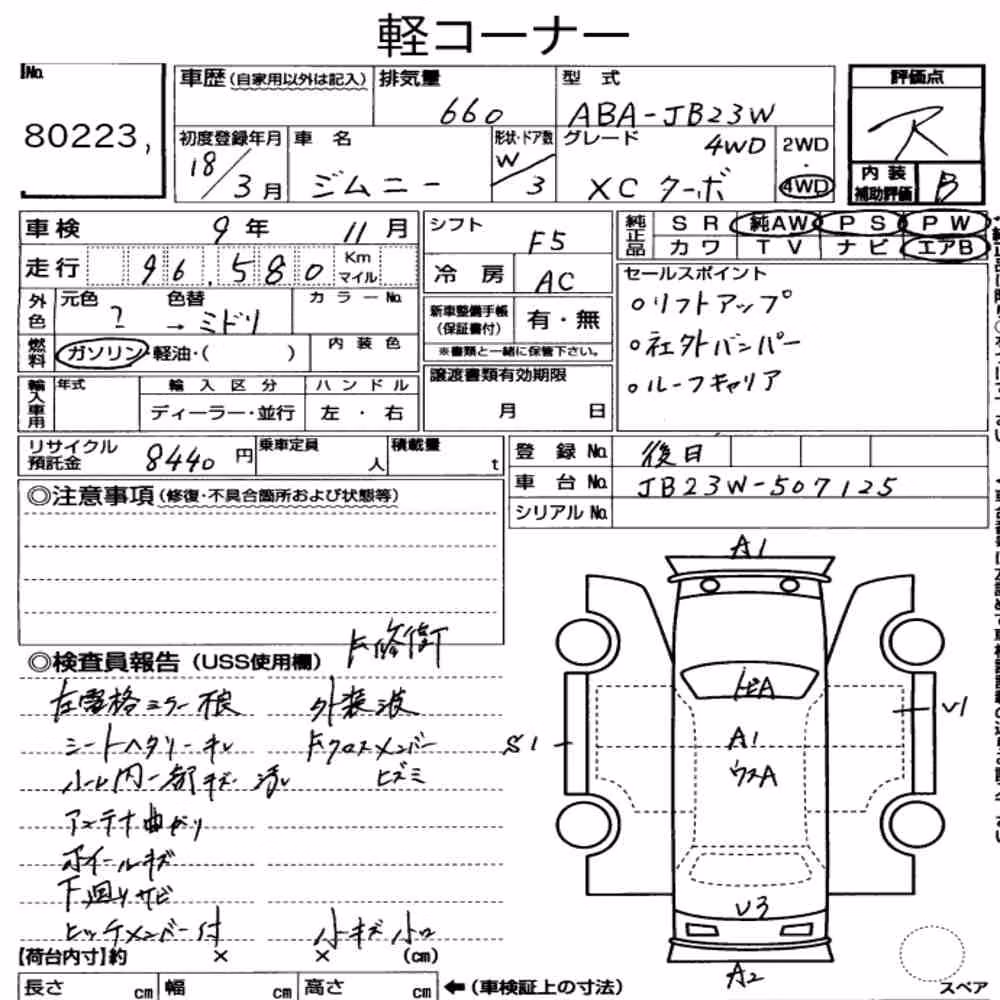 軽コーナー
No.
80223,
車歴(自家用以外は記入)
排気量
660
型式
ABA-JB23W
評価点
R
初度登録年月
18/3月
車名
ジムニー
形状・ドア数
W/3
グレード
4WD
XC ターボ
2WD
・
4WD
内装
補助評価
B
車検 9年 11月
走行 96,580 Km
マイル
外色 元色 ? 色替 → ミドリ
カラーNo.
燃料 ガソリン・軽油・( )
内装色
輸入車用 年式 輸入区分 ハンドル
ディーラー・並行 左・右
シフト F5
冷房 AC
新車整備手帳
(保証書付) 有・無
※書類と一緒に保管下さい。
譲渡書類有効期限
月 日
純正品 SR 純AW PS PW
カワ TV ナビ エアB
セールスポイント
○リフトアップ
○社外バンパー
○ルーフキャリア
リサイクル
預託金 8440円
乗車定員
人
積載量
t
登録No. 後日
車台No. JB23W-507125
シリアルNo.
◎注意事項(修復・不具合箇所および状態等)
◎検査員報告(USS使用欄)
左電格ミラー不良 外装波
シートヘタリ・キレ Fクロスメンバー
ヒズミ
ルーム内一部キズ
アンテナ曲がり
ホイールキズ
下回りサビ
ヒッチメンバー付 小キズ 小凹
A1
トビA
A1
ウスA
S1
U1
U3
A2
【荷台内寸】約 × × (cm)
長さ cm 幅 cm 高さ cm ←(車検証上の寸法)
スペア